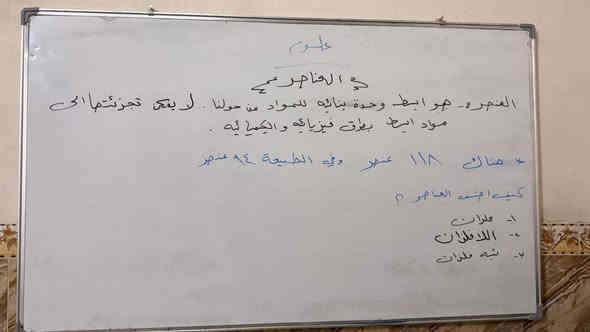 علوم
العناصر
العنصر:- هو ابسط وحدة بنائيه للمواد من حولنا . لا يمكن تجزئتها الى
مواد ابسط بطرق فيزيائيه والكيميائيه .
* هناك ١١٨ عنصر وفي الطبيعة ٩٤ عنصر
كيف اصنف العناصر ؟
١- فلزات
٢- اللافلزات
٣- شبه فلزات